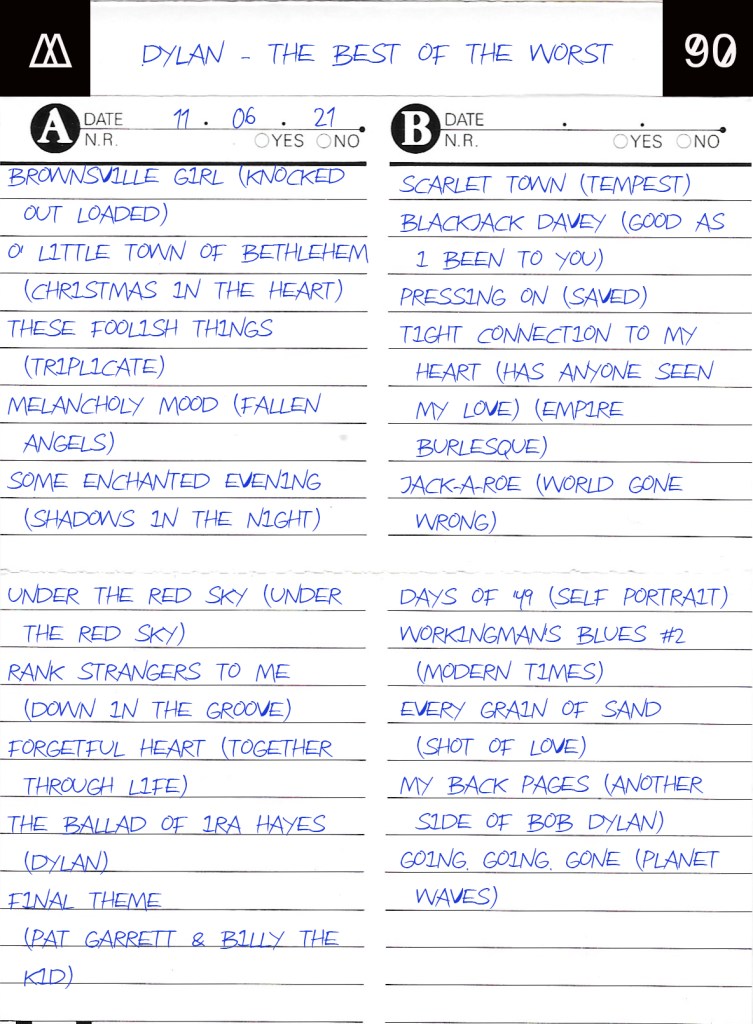 DYLAN - THE BEST OF THE WORST
90
A DATE 11 . 06 . 21
N.R. YES NO
BROWNSVILLE GIRL (KNOCKED
OUT LOADED)
O' LITTLE TOWN OF BETHLEHEM
(CHRISTMAS IN THE HEART)
THESE FOOLISH THINGS
(TRIPLICATE)
MELANCHOLY MOOD (FALLEN
ANGELS)
SOME ENCHANTED EVENING
(SHADOWS IN THE NIGHT)
UNDER THE RED SKY (UNDER
THE RED SKY)
RANK STRANGERS TO ME
(DOWN IN THE GROOVE)
FORGETFUL HEART (TOGETHER
THROUGH LIFE)
THE BALLAD OF IRA HAYES
(DYLAN)
FINAL THEME
(PAT GARRETT & BILLY THE
KID)
B DATE . .
N.R. YES NO
SCARLET TOWN (TEMPEST)
BLACKJACK DAVEY (GOOD AS
I BEEN TO YOU)
PRESSING ON (SAVED)
TIGHT CONNECTION TO MY
HEART (HAS ANYONE SEEN
MY LOVE) (EMPIRE
BURLESQUE)
JACK-A-ROE (WORLD GONE
WRONG)
DAYS OF '49 (SELF PORTRAIT)
WORKINGMAN'S BLUES #2
(MODERN TIMES)
EVERY GRAIN OF SAND
(SHOT OF LOVE)
MY BACK PAGES (ANOTHER
SIDE OF BOB DYLAN)
GOING, GOING, GONE (PLANET
WAVES)